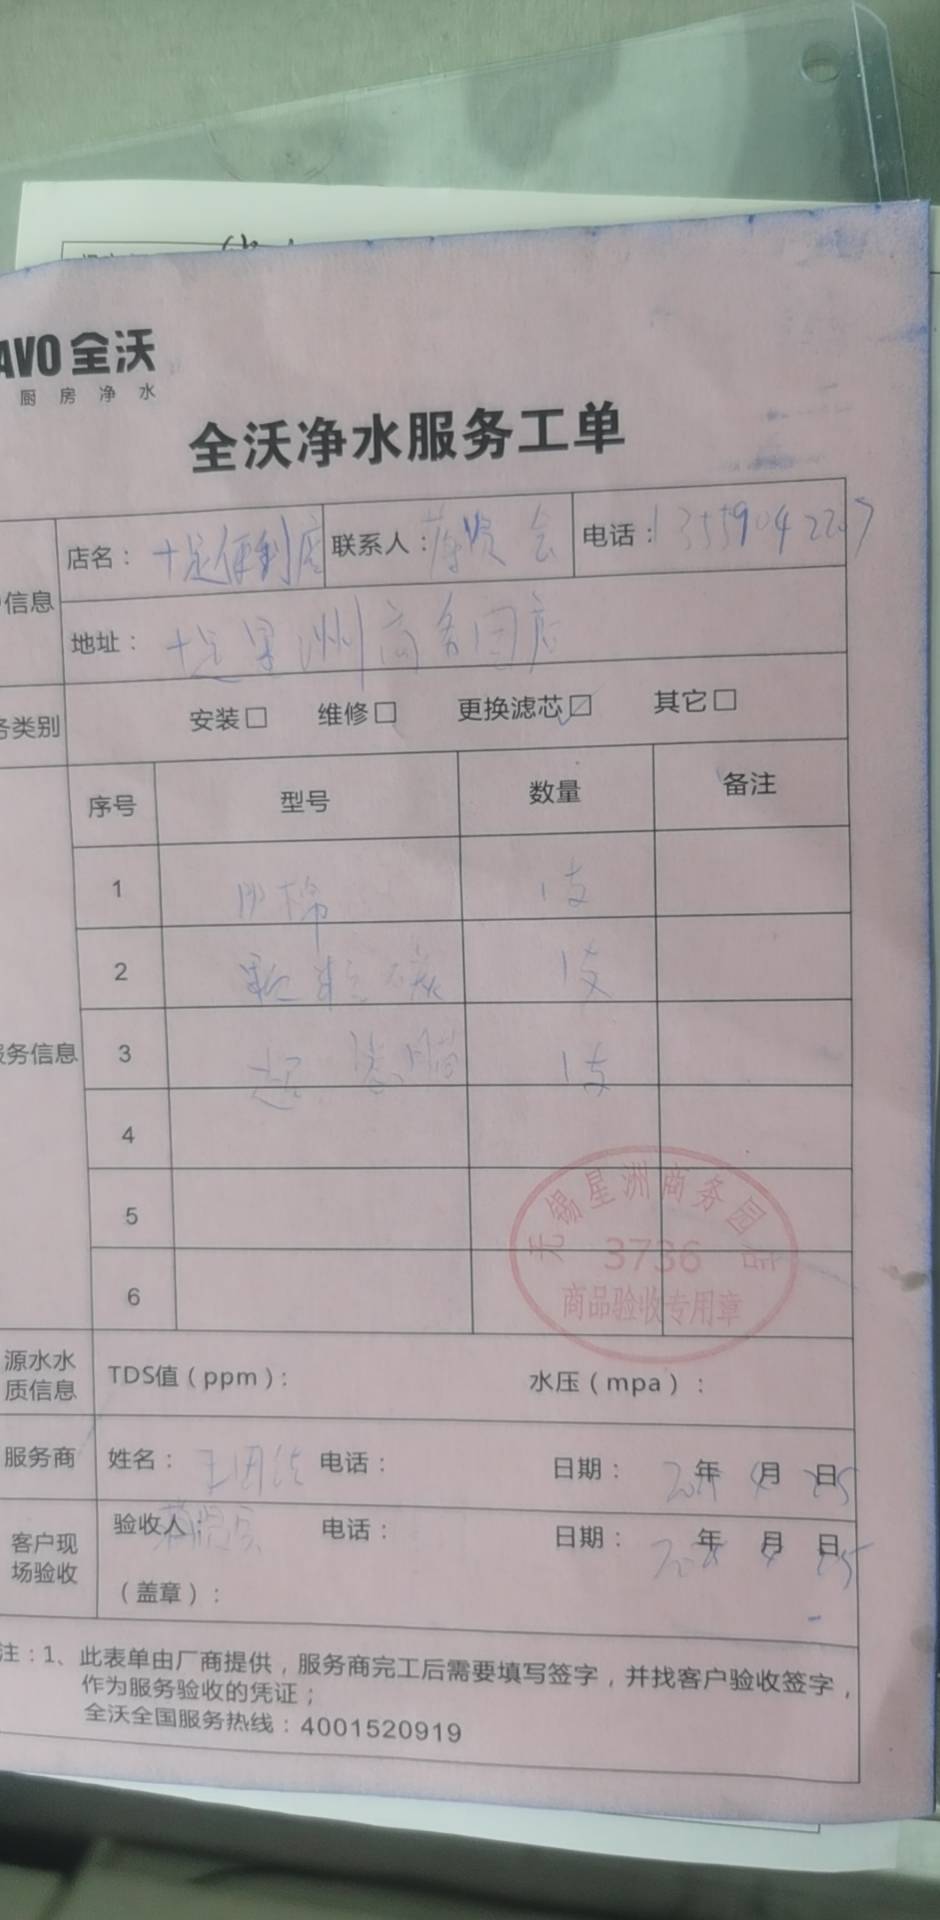 AVO 全沃
厨房净水
全沃净水服务工单
信息
店名：十足便利店 联系人： 会 电话：13559042207
地址：十足星洲商务园店
务类别
安装□ 维修□ 更换滤芯☑ 其它□
序号 型号 数量 备注
1 PP棉 1支
2 颗粒碳 1支
服务信息
3 超滤膜 1支
4
5
6
无锡星洲商务园店
3736
商品验收专用章
源水水质信息
TDS值（ppm）： 水压（mpa）：
服务商
姓名：王 电话： 日期： 年 4月 25日
客户现场验收
验收人： 电话： 日期： 年 4月 25日
（盖章）：
注：1、此表单由厂商提供，服务商完工后需要填写签字，并找客户验收签字，
作为服务验收的凭证；
全沃全国服务热线：4001520919